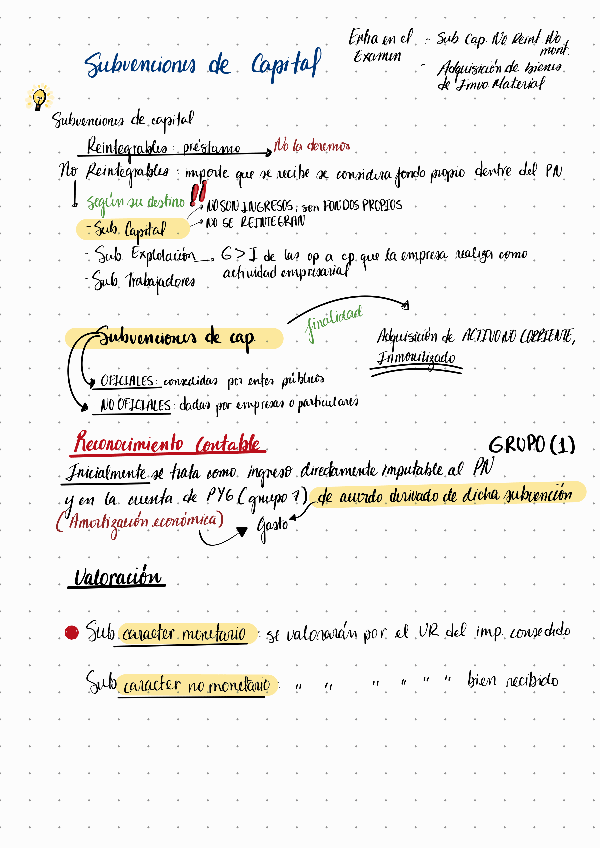 Subvenciones de Capital
Entra en el Examen - Sub Cap. No Reint No mont.
- Adquisición de bienes de Inmo Material
Subvenciones de capital
Reintegrables: préstamo → No la daremos
No Reintegrables: importe que se recibe se considera fondo propio dentre del PN
según su destino !!
- Sub. Capital → NO SON INGRESOS, son FONDOS PROPIOS
→ NO SE REINTEGRAN
- Sub Explotación → G > I de las op a cp. que la empresa realiza como actividad empresarial
- Sub Trabajadores
Subvenciones de cap. finalidad
Adquisición de ACTIVO NO CORRIENTE,
Inmovilizado
OFICIALES: concedidas por entes públicos
NO OFICIALES: dadas por empresas o particulares
Reconocimiento Contable GRUPO (1)
Inicialmente se trata como ingreso directamente imputable al PN
y en la cuenta de PYG (grupo 7) de acuerdo derivado de dicha subvención
(Amortización económica) → Gasto
Valoración
Sub caracter monetario: se valorarán por el VR del imp. consedido
Sub caracter no monetario: " " " " " " bien recibido